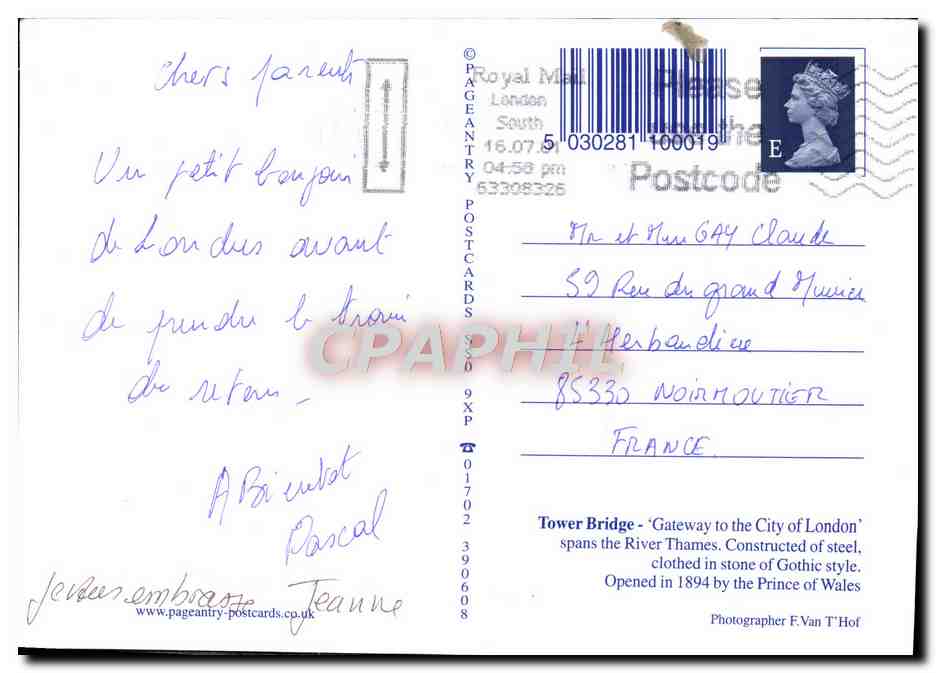 chers parents
Un petit bonjour
de Londres avant
de prendre le train
du retour -
A Bientot
Pascal
je vous embrasse Jeanne
www.pageantry-postcards.co.uk
© PAGEANTRY POSTCARDS SS0 9XP ☎ 01702 390608
Royal Mail
London
South
16.07.01
04:56 pm
63308326
5 030281 100019
Please
use the
Postcode
E
Mr et Mme GAY Claude
59 Rue du grand Murier
L'Herbaudière
85330 NOIRMOUTIER
FRANCE.
Tower Bridge - 'Gateway to the City of London'
spans the River Thames. Constructed of steel,
clothed in stone of Gothic style.
Opened in 1894 by the Prince of Wales
Photographer F.Van T'Hof
CPAPHIL